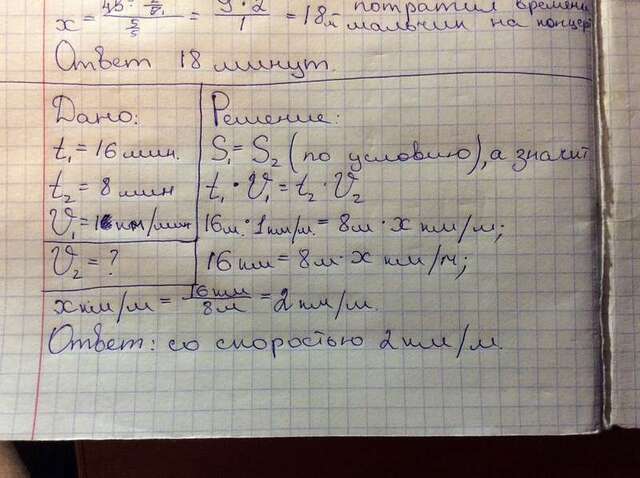 x = = 9·2/1 = 18м потратил времени
мальчик на концерт
Ответ 18 минут.
Дано:
t₁ = 16 мин.
t₂ = 8 мин
V₁ = 1 км/мин
V₂ = ?
Решение:
S₁ = S₂ (по условию), а значит
t₁ · V₁ = t₂ · V₂
16м. · 1км/м. = 8м · x км/м;
16 км = 8м · x км/м;
x км/м = 16км/8м = 2 км/м.
Ответ: со скоростью 2 км/м.